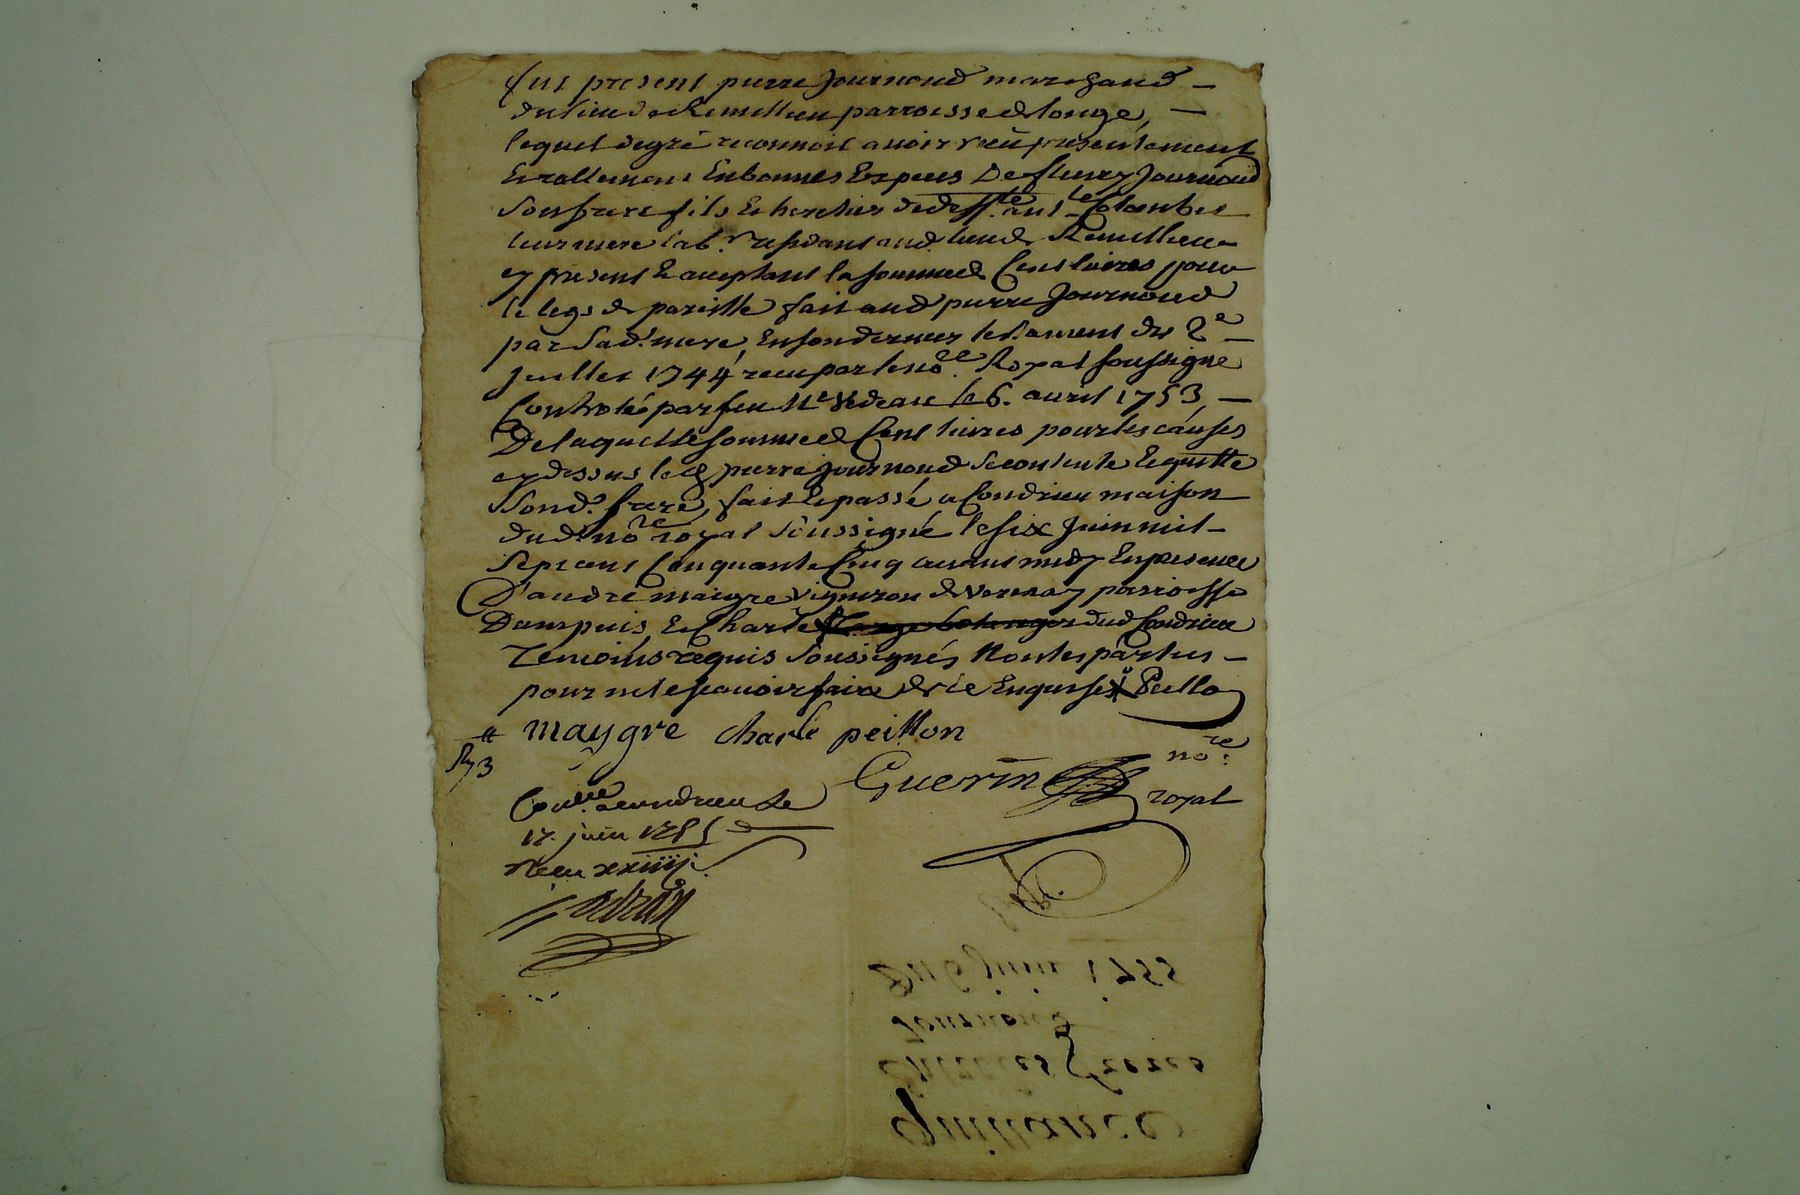 fut present pierre Journoud marchand —
du lieu de Remillieu parroisse de longe, —
lequel de gré reconnoit avoir receu presentement
Et reellement En bonnes Especes De fleury Journoud
son frere fils & heretier de deff.te Colombet
leur mere lab.r residant aud. lieu de Remillieu
cy present & acceptant la somme de Cent livres pour
le legs de pareille fait aud pierre Journoud
par Sad. mere, En son dernier testament du 2e —
Juillet 1744 receu par le no.re Royal soussigné
Controlé par feu Me Vedeau le 6. avril 1753, —
De laquelle somme de Cent livres pour les causes
cy dessus led pierre Journoud se contente & quitte
Sond. frere, fait & passé a Condrieu maison
dud. no.re royal soussigné le six Juin mil —
Sept cent Cinquante Cinq avant midy En presence
D'andré maigre vigneron de verenay parroisse
Dampuis, & Charle dud Condrieu
Temoins requis soussignés Non les parties —
pour ne le scavoir faire de ce Enquises Peillon
maygre charle peillon
no.re
Guerin
royal
R 3
Con.lé a condrieu le
17. juin 1755
Receu
Vedeau
Du 6 Juin 1755
Journoud
freres
Quittance